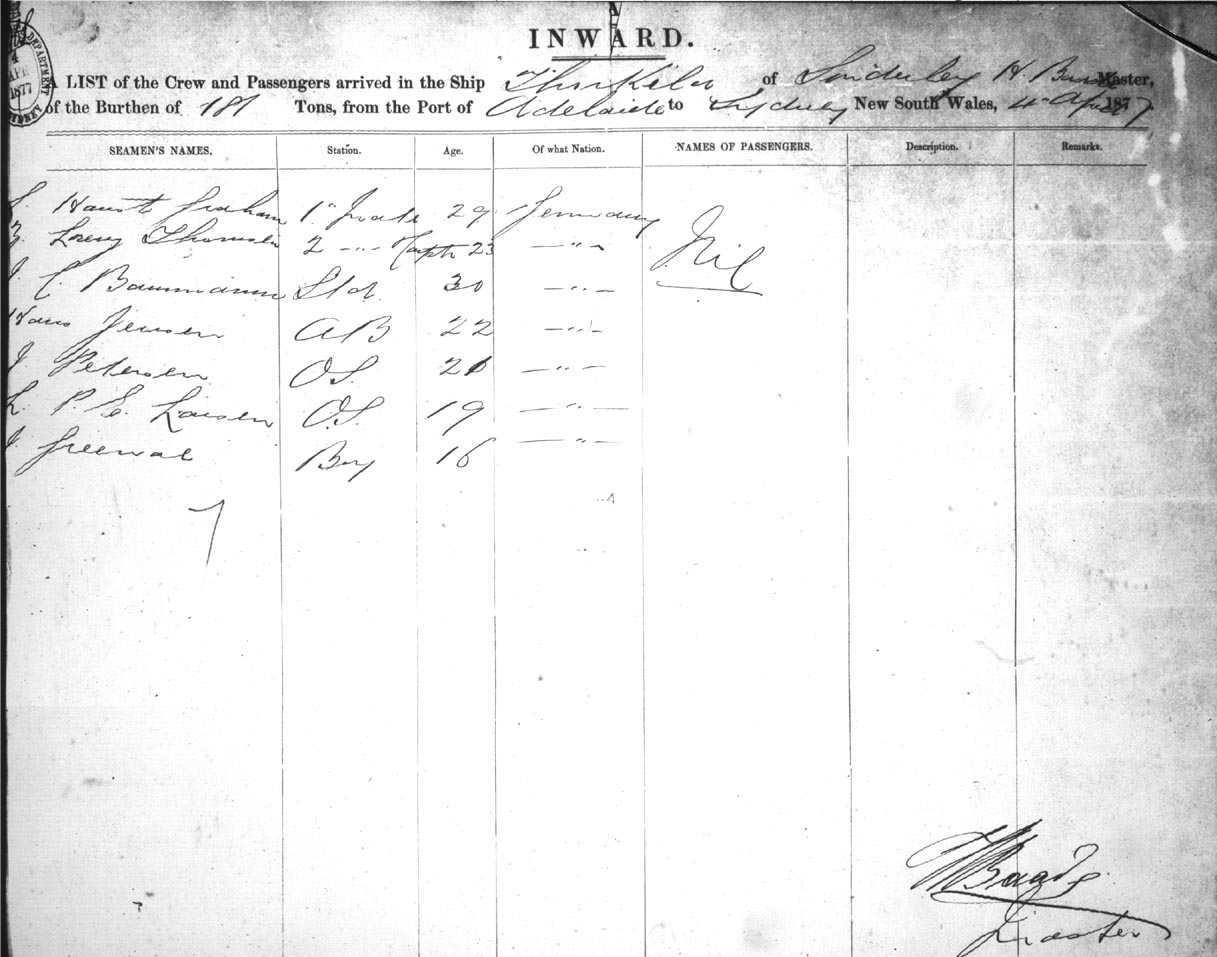 INWARD.
A LIST of the Crew and Passengers arrived in the Ship of H. Master,
of the Burthen of 181 Tons, from the Port of Adelaide to Sydney New South Wales, 4th April 1877
SEAMEN'S NAMES. Station. Age. Of what Nation. NAMES OF PASSENGERS. Description. Remarks.
Graham 1" Mate 29 Germany
Lorenz Thomsen 2 —"— 23 —"— Nil
C Baummann Std. 30 —"—
Hans Jensen AB 22 —"—
J Petersen O.S. 21 —"—
L. P. E. Larsen O.S. 19 —"—
J. Boy 16 —"—
7
Master
DEPARTMENT
4
APR
1877
SYDNEY